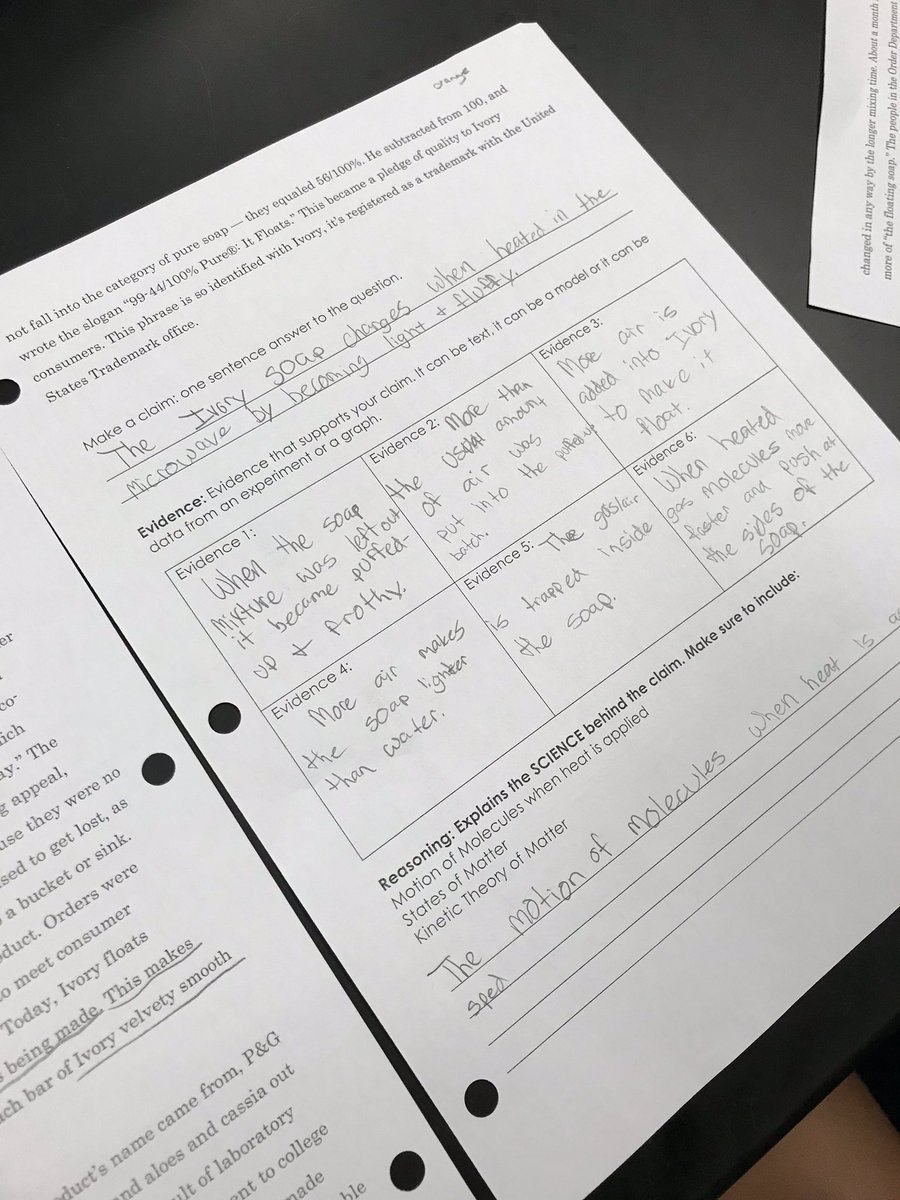 orange
not fall into the category of pure soap — they equaled 56/100%. He subtracted from 100, and
wrote the slogan "99-44/100% Pure®: It Floats." This became a pledge of quality to Ivory
consumers. This phrase is so identified with Ivory, it's registered as a trademark with the United
States Trademark office.
Make a claim: one sentence answer to the question.
The Ivory soap changes when heated in the
microwave by becoming light + fluffy.
Evidence: Evidence that supports your claim. It can be text, it can be a model or it can be
data from an experiment or a graph.
Evidence 1:
When the soap
mixture was left out
it became puffed-
up + frothy.
Evidence 2: More than
the usual amount
of air was
put into the puffed up
batch.
Evidence 3:
More air is
added into Ivory
to make it
float.
Evidence 4:
More air makes
the soap lighter
than water.
Evidence 5: The gas/air
is trapped inside
the soap.
Evidence 6:
When heated
gas molecules move
faster and push at
the sides of the
soap.
Reasoning: Explains the SCIENCE behind the claim. Make sure to include:
Motion of Molecules when heat is applied
States of Matter
Kinetic Theory of Matter
The motion of molecules when heat is
sped
changed in any way by the longer mixing time. About a month
more of "the floating soap." The people in the Order Department
er
co-
ich
ay." The
g appeal,
use they were no
sed to get lost, as
a bucket or sink.
duct. Orders were
to meet consumer
Today, Ivory floats
being made. This makes
ch bar of Ivory velvety smooth
oduct's name came from, P&G
and aloes and cassia out
ult of laboratory
ent to college
made
ble